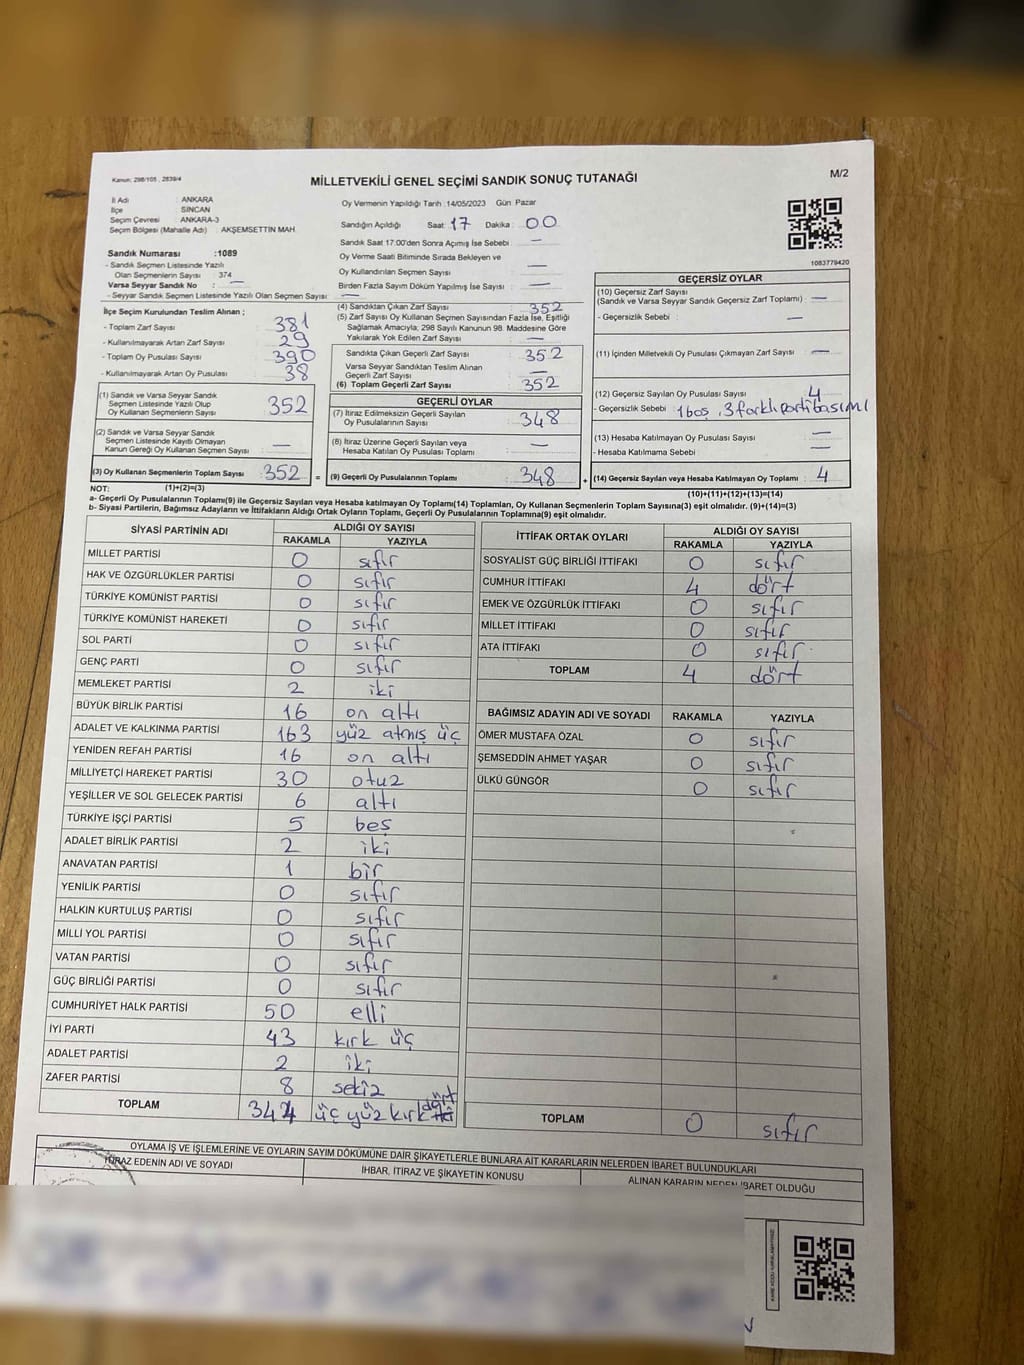 Kanun: 298/105 , 2839/4
MİLLETVEKİLİ GENEL SEÇİMİ SANDIK SONUÇ TUTANAĞI
M/2
İl Adı : ANKARA
İlçe : SİNCAN
Seçim Çevresi : ANKARA-3
Seçim Bölgesi (Mahalle Adı) : AKŞEMSETTİN MAH.
Oy Vermenin Yapıldığı Tarih :14/05/2023 Gün: Pazar
Sandığın Açıldığı Saat: 17 Dakika : 00
Sandık Saat 17:00'den Sonra Açımış İse Sebebi —
Oy Verme Saati Bitiminde Sırada Bekleyen ve
Oy Kullandırılan Seçmen Sayısı —
Birden Fazla Sayım Döküm Yapılmış İse Sayısı —
1083779420
Sandık Numarası :1089
- Sandık Seçmen Listesinde Yazılı
Olan Seçmenlerin Sayısı 374
Varsa Seyyar Sandık No : —
- Seyyar Sandık Seçmen Listesinde Yazılı Olan Seçmen Sayısı : —
İlçe Seçim Kurulundan Teslim Alınan ;
- Toplam Zarf Sayısı 381
- Kullanılmayarak Artan Zarf Sayısı 29
- Toplam Oy Pusulası Sayısı 390
- Kullanılmayarak Artan Oy Pusulası 38
(1) Sandık ve Varsa Seyyar Sandık
Seçmen Listesinde Yazılı Olup
Oy Kullanan Seçmenlerin Sayısı 352
(2) Sandık ve Varsa Seyyar Sandık
Seçmen Listesinde Kayıtlı Olmayan
Kanun Gereği Oy Kullanan Seçmen Sayısı —
(3) Oy Kullanan Seçmenlerin Toplam Sayısı 352 =
(4) Sandıktan Çıkan Zarf Sayısı 352
(5) Zarf Sayısı Oy Kullanan Seçmen Sayısından Fazla İse, Eşitliği
Sağlamak Amacıyla; 298 Sayılı Kanunun 98. Maddesine Göre
Yakılarak Yok Edilen Zarf Sayısı —
Sandıkta Çıkan Geçerli Zarf Sayısı 352
Varsa Seyyar Sandıktan Teslim Alınan
Geçerli Zarf Sayısı —
(6) Toplam Geçerli Zarf Sayısı 352
GEÇERLİ OYLAR
(7) İtiraz Edilmeksizin Geçerli Sayılan
Oy Pusulalarının Sayısı 348
(8) İtiraz Üzerine Geçerli Sayılan veya
Hesaba Katılan Oy Pusulası Toplamı —
(9) Geçerli Oy Pusulalarının Toplamı 348 +
GEÇERSİZ OYLAR
(10) Geçersiz Zarf Sayısı
(Sandık ve Varsa Seyyar Sandık Geçersiz Zarf Toplamı) : —
- Geçersizlik Sebebi : —
(11) İçinden Milletvekili Oy Pusulası Çıkmayan Zarf Sayısı : —
(12) Geçersiz Sayılan Oy Pusulası Sayısı : 4
- Geçersizlik Sebebi : 1 boş , 3 farklı parti basımı
(13) Hesaba Katılmayan Oy Pusulası Sayısı : —
- Hesaba Katılmama Sebebi : —
(14) Geçersiz Sayılan veya Hesaba Katılmayan Oy Toplamı : 4
NOT: (1)+(2)=(3)
(10)+(11)+(12)+(13)=(14)
a- Geçerli Oy Pusulalarının Toplamı(9) ile Geçersiz Sayılan veya Hesaba katılmayan Oy Toplamı(14) Toplamları, Oy Kullanan Seçmenlerin Toplam Sayısına(3) eşit olmalıdır. (9)+(14)=(3)
b- Siyasi Partilerin, Bağımsız Adayların ve İttifakların Aldığı Ortak Oyların Toplamı, Geçerli Oy Pusulalarının Toplamına(9) eşit olmalıdır.
SİYASİ PARTİNİN ADI ALDIĞI OY SAYISI
RAKAMLA YAZIYLA
MİLLET PARTİSİ 0 sıfır
HAK VE ÖZGÜRLÜKLER PARTİSİ 0 sıfır
TÜRKİYE KOMÜNİST PARTİSİ 0 sıfır
TÜRKİYE KOMÜNİST HAREKETİ 0 sıfır
SOL PARTİ 0 sıfır
GENÇ PARTİ 0 sıfır
MEMLEKET PARTİSİ 2 iki
BÜYÜK BİRLİK PARTİSİ 16 on altı
ADALET VE KALKINMA PARTİSİ 163 yüz atmış üç
YENİDEN REFAH PARTİSİ 16 on altı
MİLLİYETÇİ HAREKET PARTİSİ 30 otuz
YEŞİLLER VE SOL GELECEK PARTİSİ 6 altı
TÜRKİYE İŞÇİ PARTİSİ 5 beş
ADALET BİRLİK PARTİSİ 2 iki
ANAVATAN PARTİSİ 1 bir
YENİLİK PARTİSİ 0 sıfır
HALKIN KURTULUŞ PARTİSİ 0 sıfır
MİLLİ YOL PARTİSİ 0 sıfır
VATAN PARTİSİ 0 sıfır
GÜÇ BİRLİĞİ PARTİSİ 0 sıfır
CUMHURİYET HALK PARTİSİ 50 elli
İYİ PARTİ 43 kırk üç
ADALET PARTİSİ 2 iki
ZAFER PARTİSİ 8 sekiz
TOPLAM 344 üç yüz kırk dört
İTTİFAK ORTAK OYLARI ALDIĞI OY SAYISI
RAKAMLA YAZIYLA
SOSYALİST GÜÇ BİRLİĞİ İTTİFAKI 0 sıfır
CUMHUR İTTİFAKI 4 dört
EMEK VE ÖZGÜRLÜK İTTİFAKI 0 sıfır
MİLLET İTTİFAKI 0 sıfır
ATA İTTİFAKI 0 sıfır
TOPLAM 4 dört
BAĞIMSIZ ADAYIN ADI VE SOYADI RAKAMLA YAZIYLA
ÖMER MUSTAFA ÖZAL 0 sıfır
ŞEMSEDDİN AHMET YAŞAR 0 sıfır
ÜLKÜ GÜNGÖR 0 sıfır
TOPLAM 0 sıfır
OYLAMA İŞ VE İŞLEMLERİNE VE OYLARIN SAYIM DÖKÜMÜNE DAİR ŞİKAYETLERLE BUNLARA AİT KARARLARIN NELERDEN İBARET BULUNDUKLARI
İTİRAZ EDENİN ADI VE SOYADI İHBAR, İTİRAZ VE ŞİKAYETİN KONUSU ALINAN KARARIN NEDEN İBARET OLDUĞU